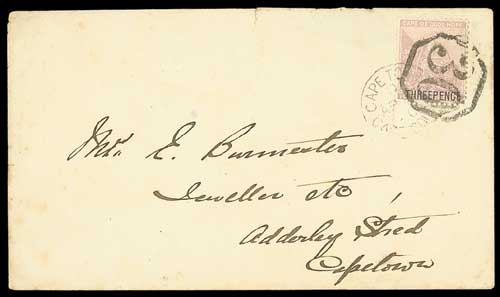 CAPE OF GOOD HOPE
THREEPENCE
CAPE TO
Mr. E. Burmester
Jeweller etc
Adderley Street
Capetown